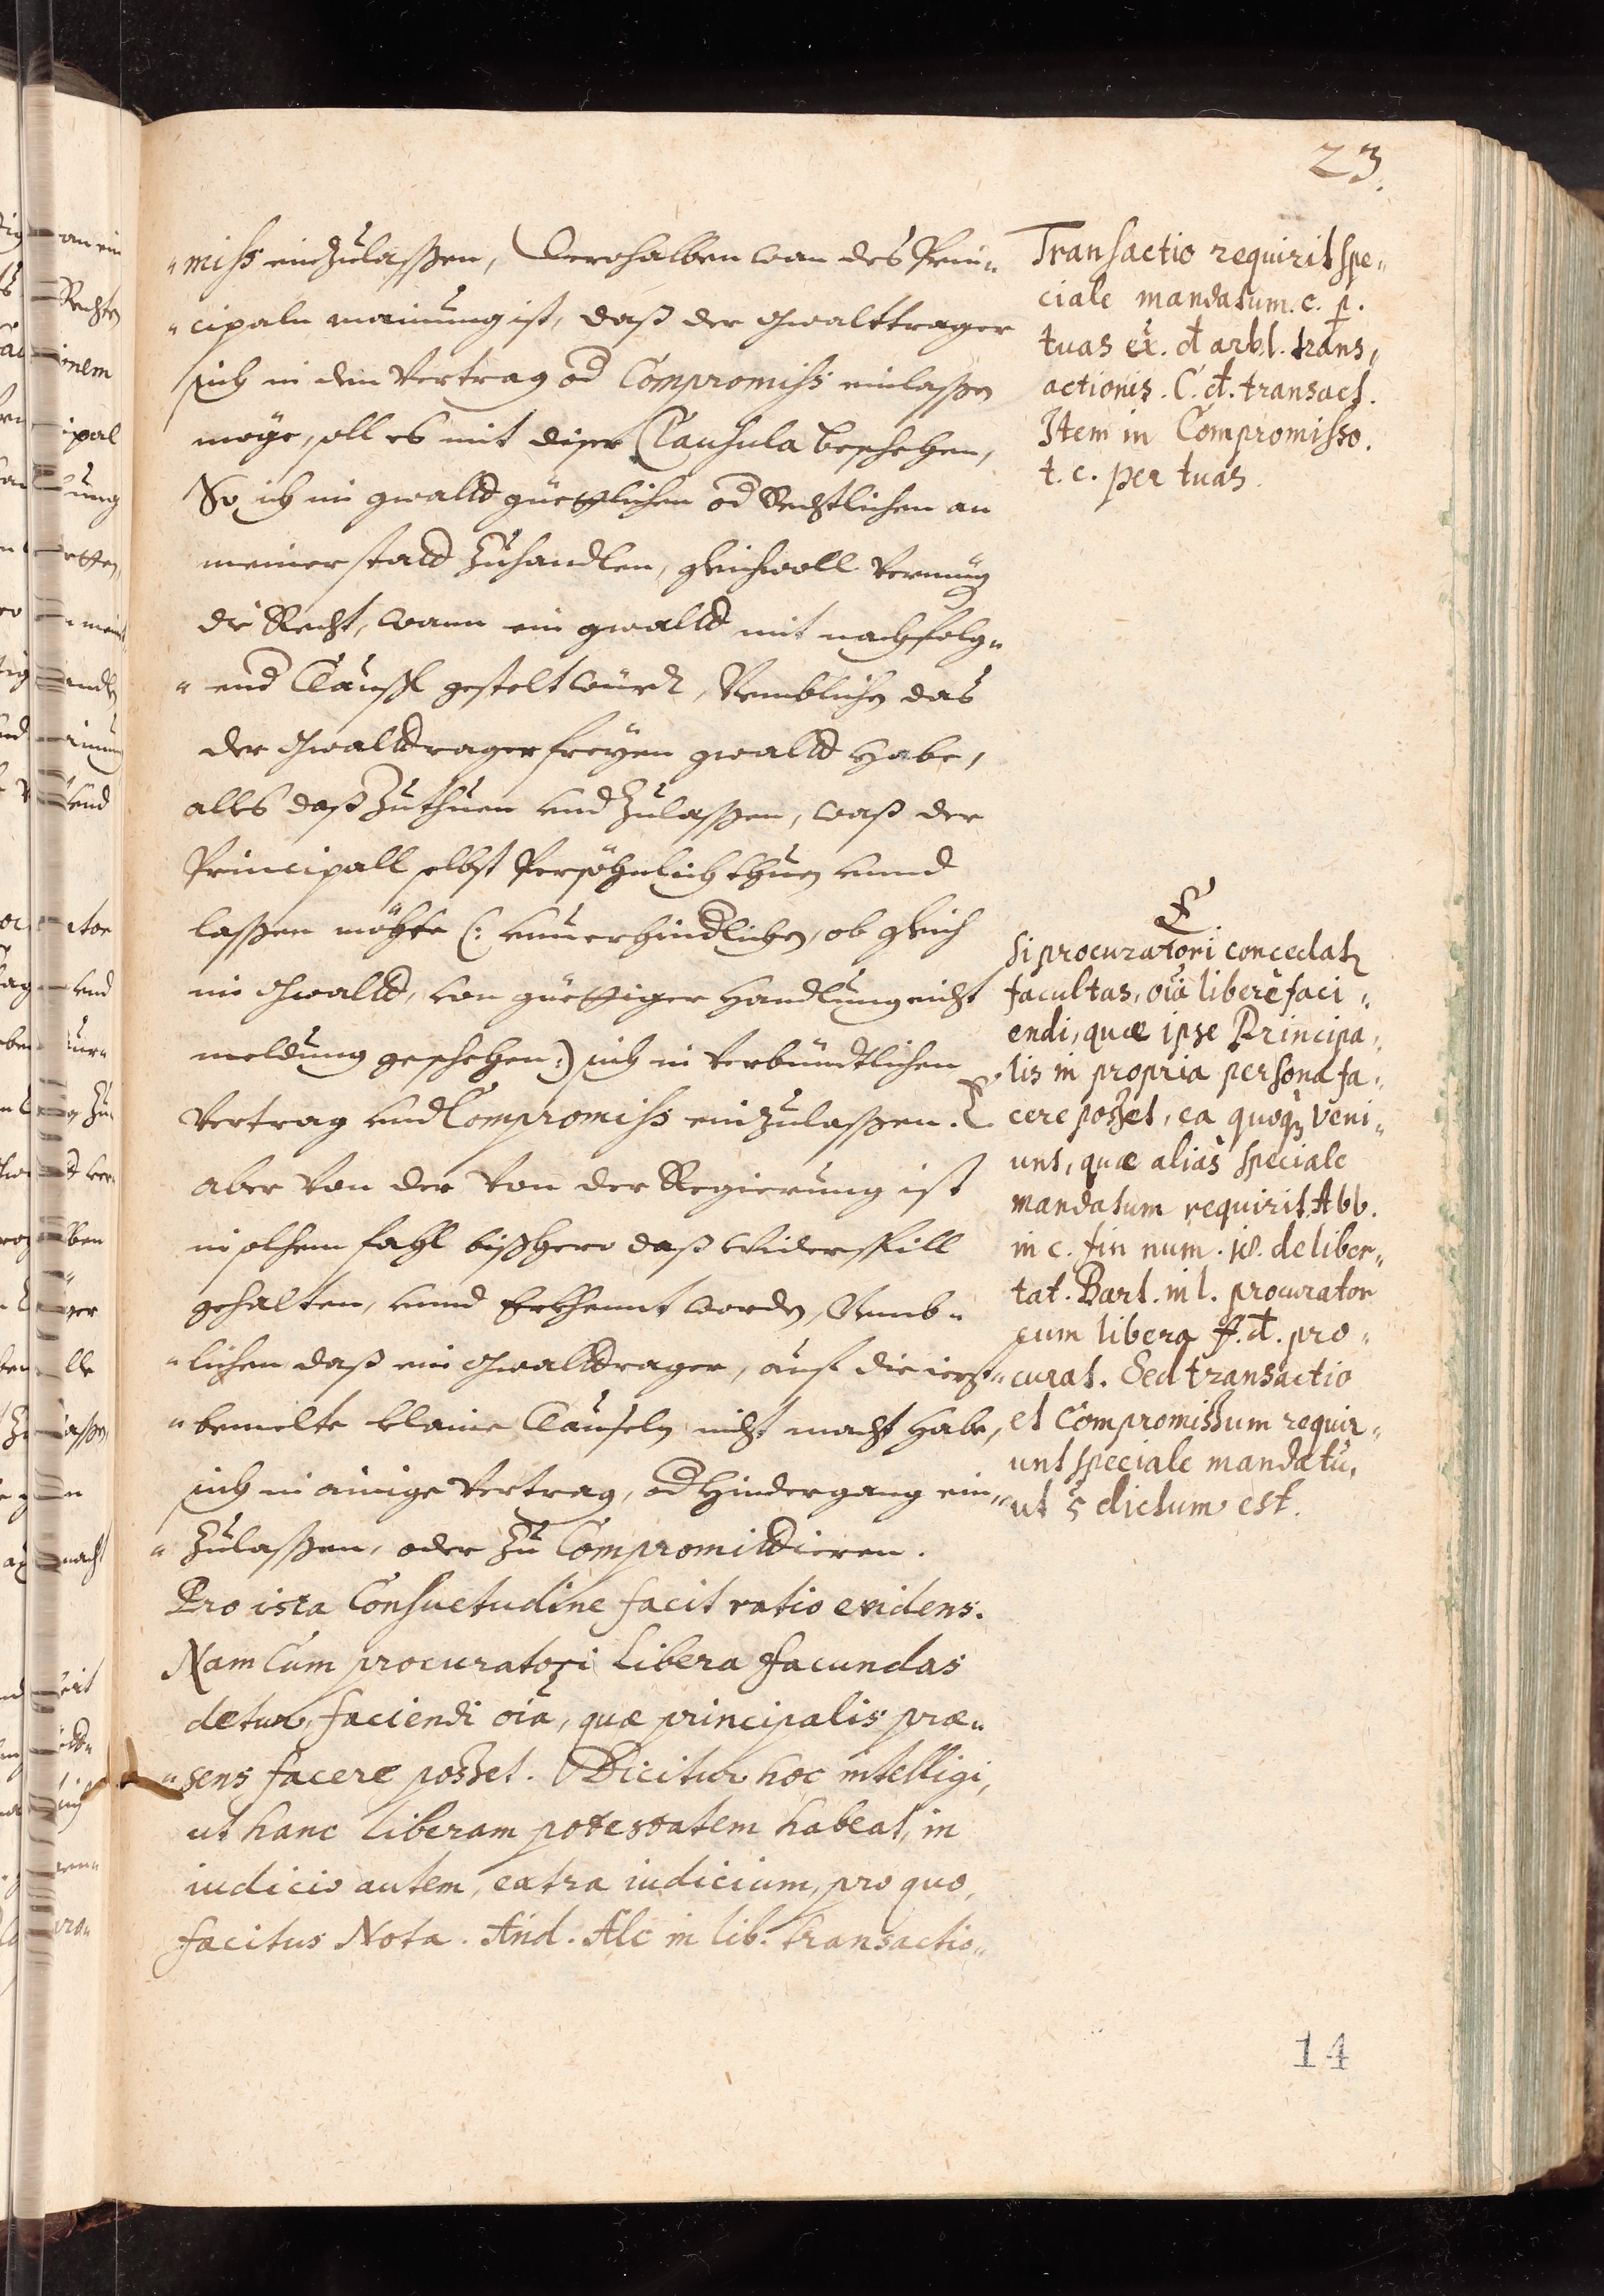 23.
"miss einzulassen, Derohalben wan des Prin"
"cipaln mainung ist, daß der Gwalttrager
sich in den Vertrag od Compromiss einlassen
möge, soll es mit diser Clausula beschehen,
So ich im gwalld güettlichen od Rechtlichen an
meiner stadd zuhandlen, gleichwoll vermüg
die Recht, wann ein gwalld mit nachfolg"
"end Clausl gestelt würdt, Nemblichen das
der Gwalldtrager freyen gwalld habe,
alles daß zuthuen und zulassen, waß der
Principall selbst Persöhnlich thuen unnd
lassen möhte (: unuerhindlichen, ob gleich
im Gwalld, von güettiger handlung nicht
meldung geschehen :) sich in verbündtlichen
Vertrag und Compromiss einzulassen. E
aber von der von der Regierung ist
in solhem fahl bißhero daß widerspill
gehalten, unnd Erkhennt worden, Nemb"
"lichen daß ein Gwalldtrager, auf die ierzt"
"bemelte klaine Clauseln nicht macht habe,
sich in ainige Vertrag, od hindergang ein"
"zulassen, oder zu Compromiddieren.
Pro ista Consuetudine facit ratio evidens.
Nam Cum procuratori libera facundas
detur, faciendi oia, quæ principalis præ"
"sens facere posset. Dicitur hoc intelligi,
ut hanc liberam potestatem habeat, in
iudicio autem, eatra iudicium, pro quo,
facitus Nota. And. Alc in lib. transactio"
Transactio requirit spe"
ciale mandatum. c. p.
tuas ex. d arb. l. trans"
actionis. C. d. transact.
Item in Compromisso.
t. c. per tuas.
E
Si procuratori concedat
facultas, oia libere faci"
endi, quæ ipse Principa"
lis in propria persona fa"
cere posset, ea quoq veni"
unt, quæ alias speciale
mandatum requirit Abb.
in c. fin num. 18. de liber"
tat. Bart. in l. procurator
cum libera ff. d. pro"
curat. Sed transactio
et Compromissum requir"
unt speciale mandatu,
ut s dictum est.
14